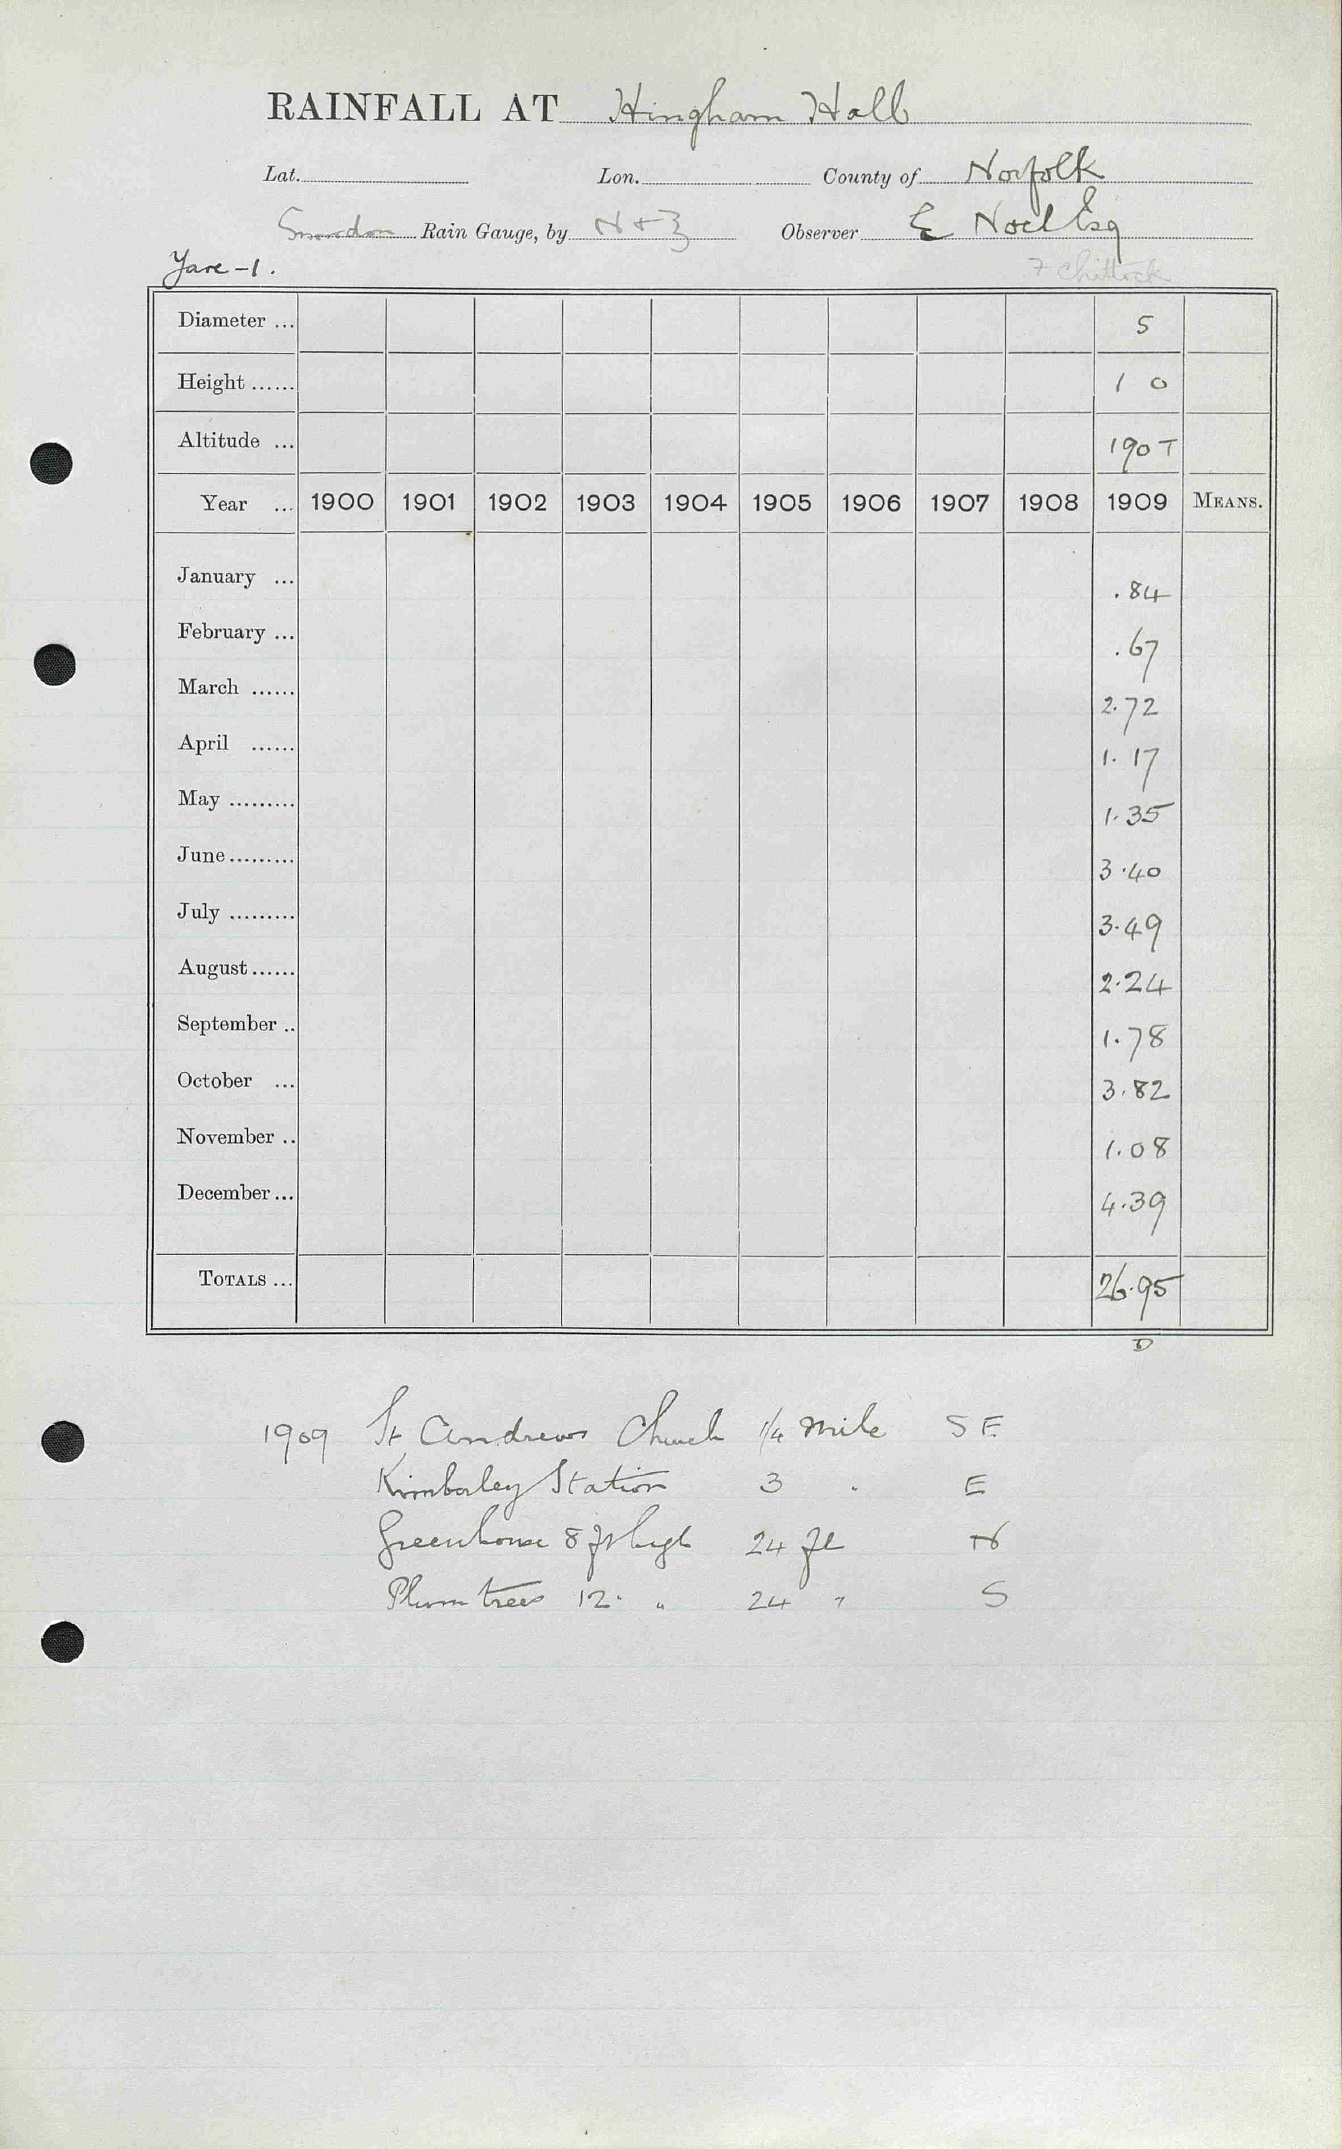 RAINFALL AT Hingham Hall
Lat. Lon. County of Norfolk
Snowdon Rain Gauge, by N + Z Observer E Noel Esq
Yare - 1. F Chittock
Diameter ... 5
Height ...... 1 0
Altitude ... 190 T
Year ... 1900 1901 1902 1903 1904 1905 1906 1907 1908 1909 MEANS.
January ... .84
February ... .67
March ...... 2.72
April ...... 1.17
May ......... 1.35
June ......... 3.40
July ......... 3.49
August ...... 2.24
September .. 1.78
October ... 3.82
November .. 1.08
December ... 4.39
TOTALS ... 26.95
D
1909 St Andrews Church 1/4 mile S E
Kimberley Station 3 " E
Greenhouse 8 ft high 24 ft N
Plum trees 12 " " 24 " S